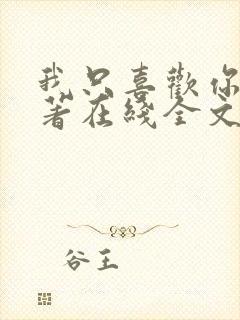 我只喜歡你
著在綫全文
谷王